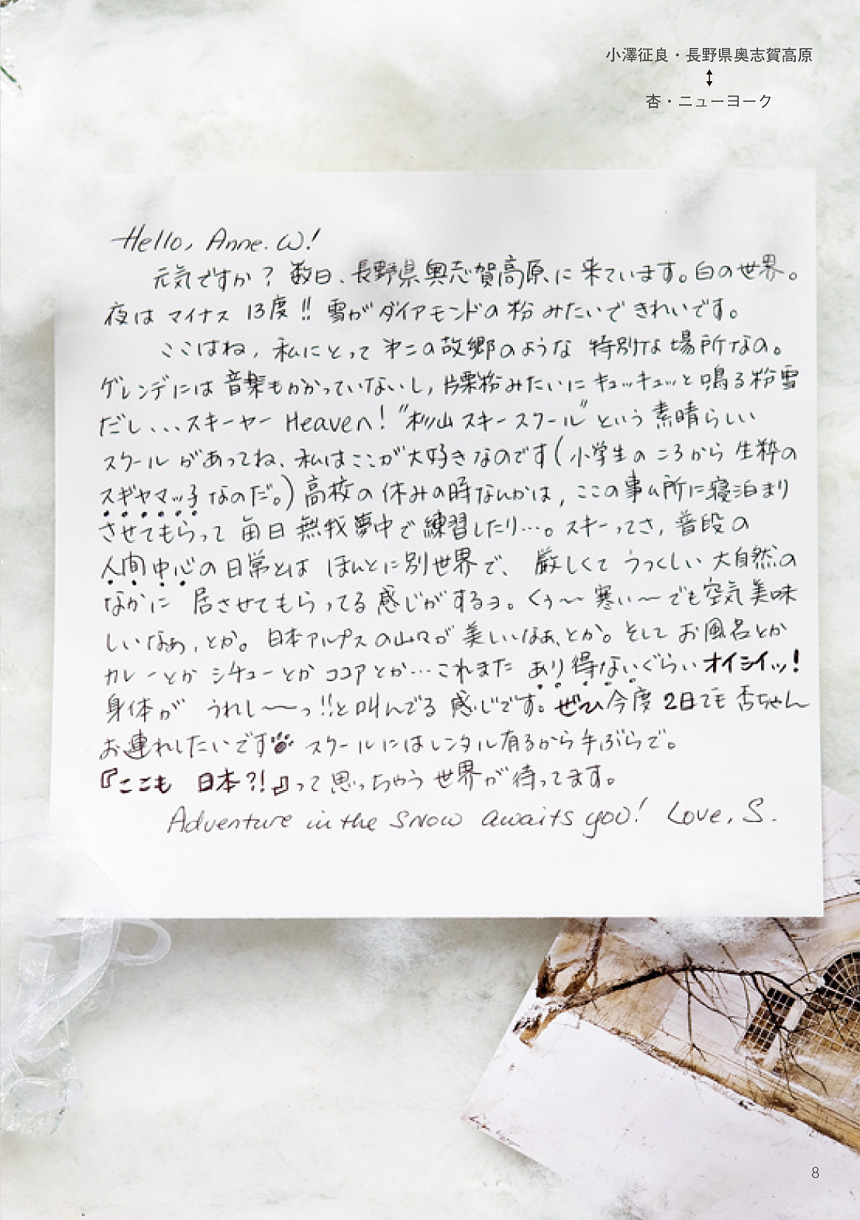 小澤征良・長野県奥志賀高原
↕
杏・ニューヨーク
Hello, Anne. W!
元気ですか？ 数日、長野県奥志賀高原に来ています。白の世界。
夜は マイナス 13度!! 雪がダイアモンドの粉みたいできれいです。
ここはね，私にとって 第二の故郷のような 特別な場所なの。
ゲレンデには音楽もかかっていないし，片栗粉みたいにキュッキュッと鳴る粉雪
だし... スキーヤー Heaven! "杉山スキースクール" という素晴らしい
スクールがあってね、私はここが大好きなのです(小学生のころから生粋の
スギヤマッ子なのだ。) 高校の休みの時なんかは，ここの事ム所に寝泊まり
させてもらって 毎日無我夢中で練習したり…。スキーってさ，普段の
人間中心の日常とは ほんとに別世界で、厳しくて うつくしい大自然の
なかに 居させてもらってる感じがするヨ。くぅ〜〜寒い〜〜でも空気美味
しいなぁ，とか。日本アルプスの山々が美しいなぁ、とか。そして お風呂とか
カレーとか シチューとか ココアとか…これまた あり得ないぐらいオイシイッ!
身体が うれし〜〜っ!!と叫んでる感じです。ぜひ今度2日でも杏ちゃん
お連れしたいです スクールにはレンタル有るから手ぶらで。
『ここも 日本?!』って思っちゃう世界が待ってます。
Adventure in the snow awaits you! Love, S.
8